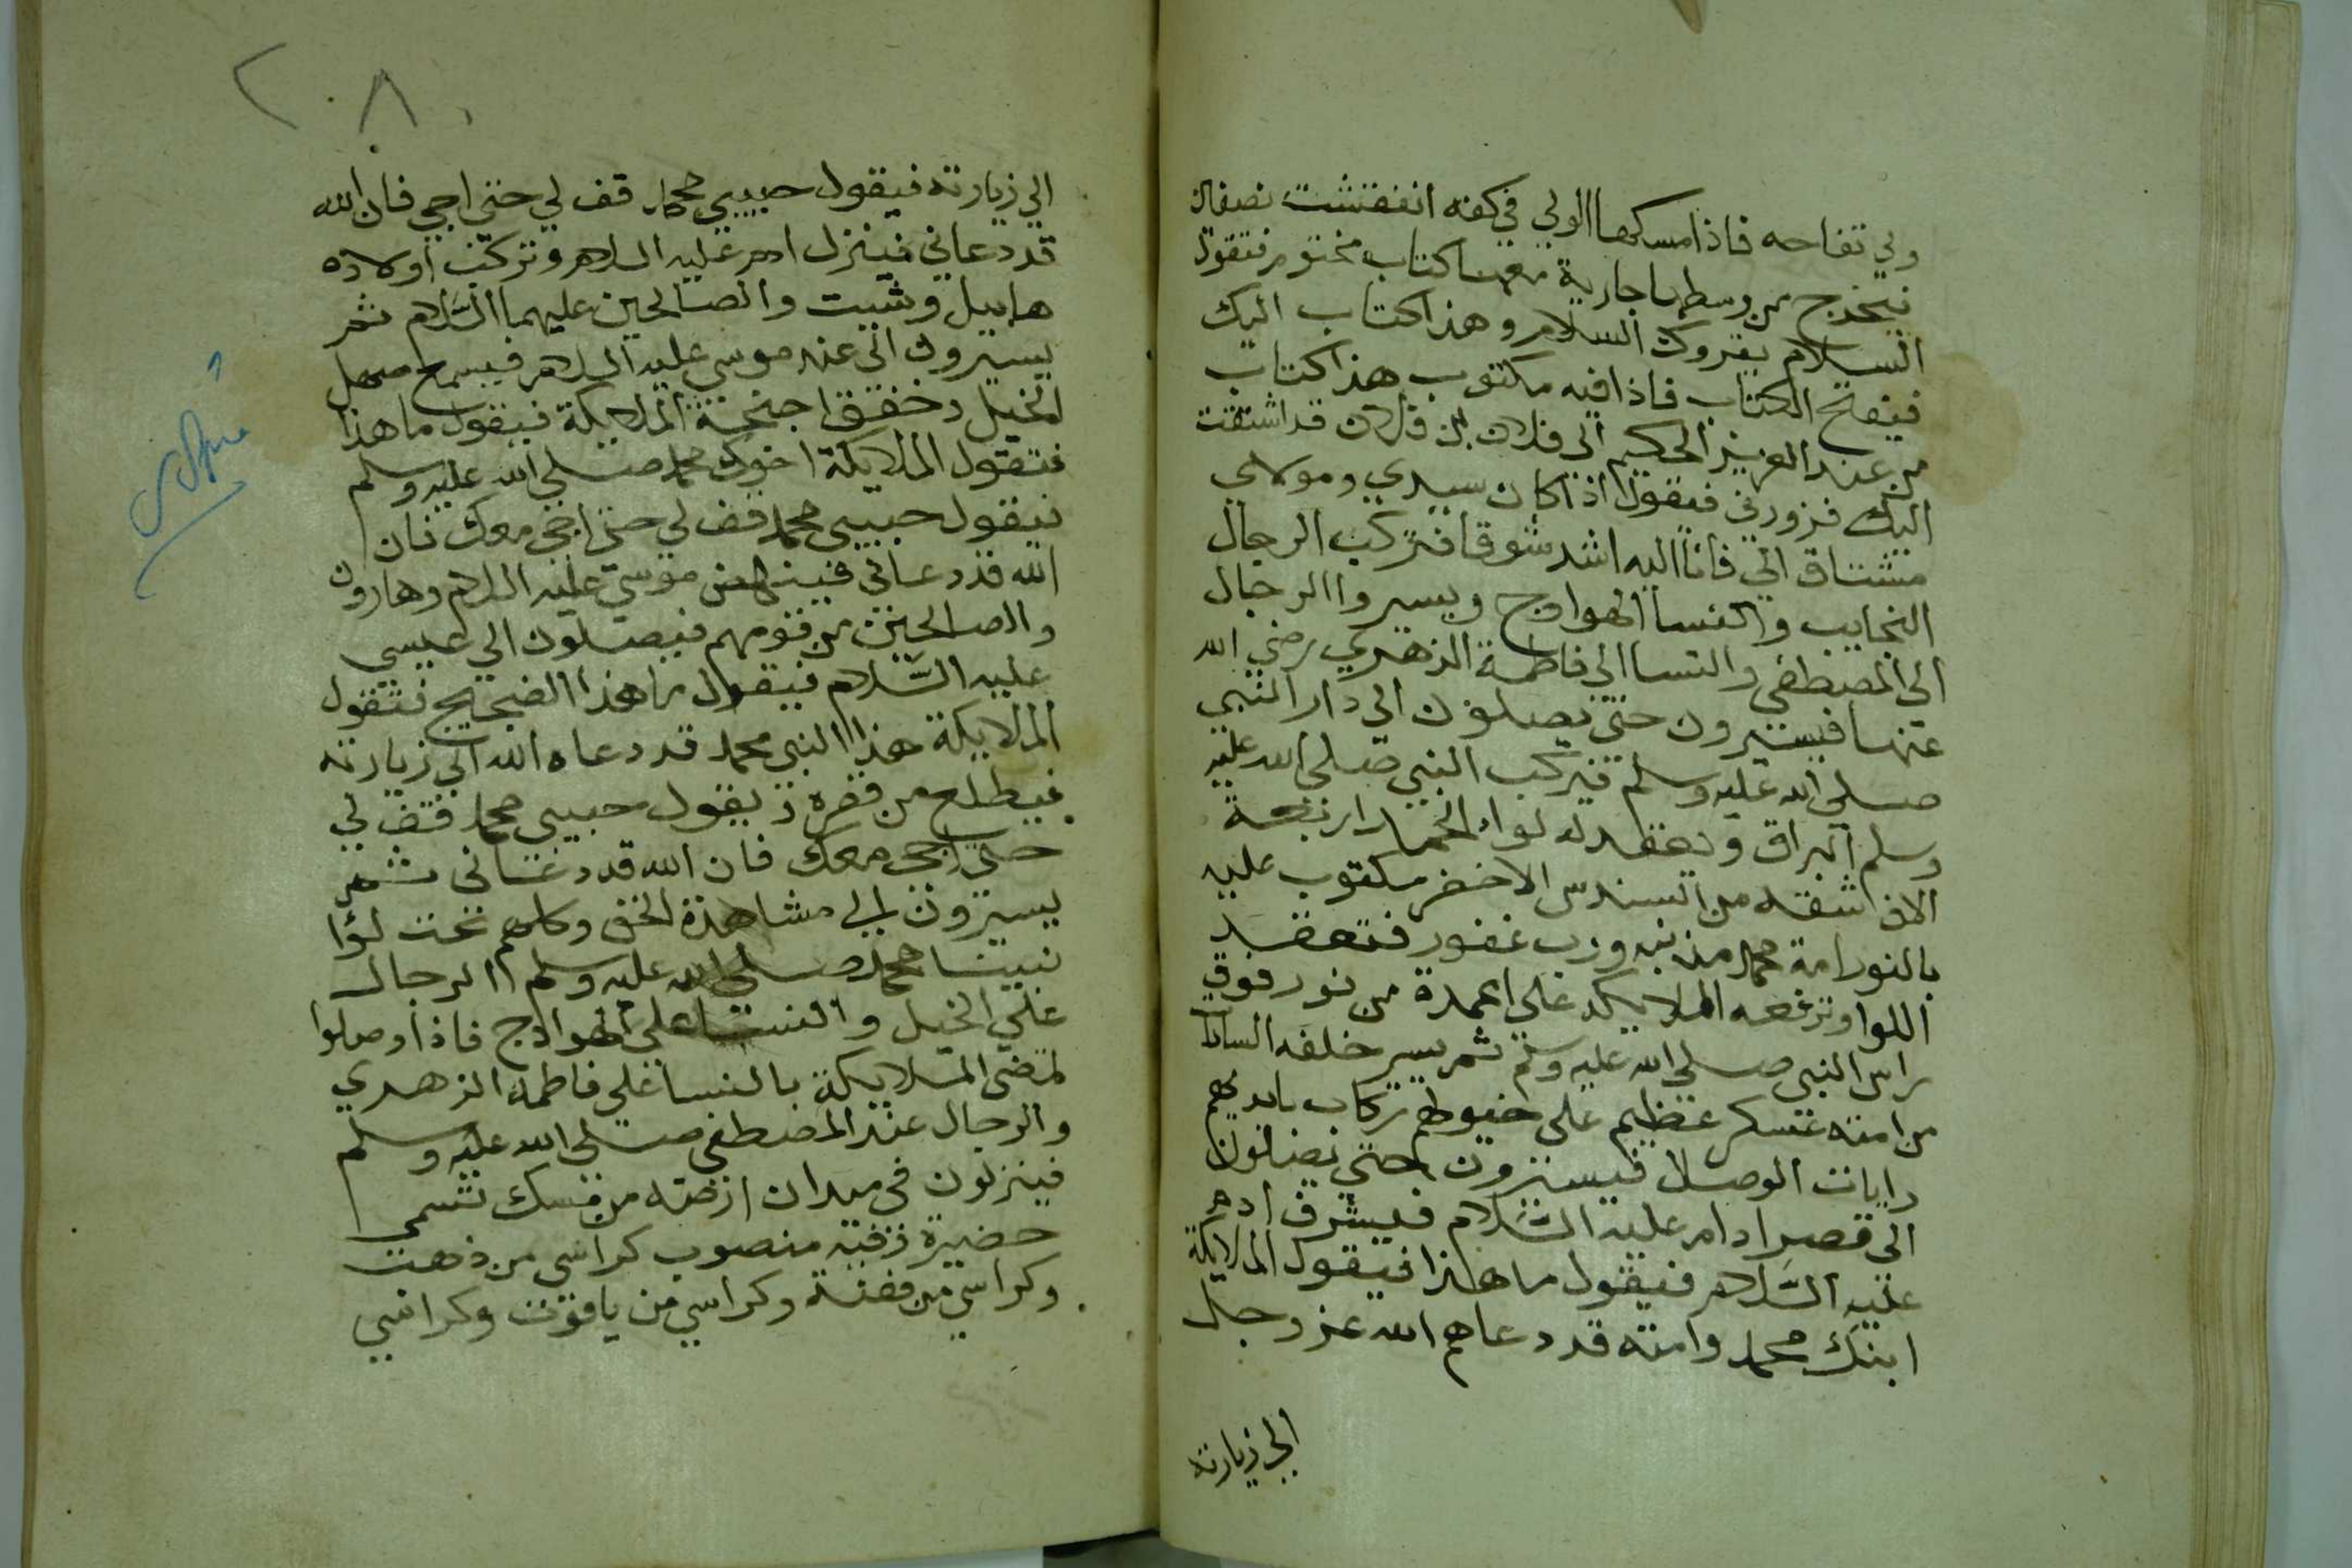 ولي تفاحه فاذا مسكها الولي في كفه انفقشت نصفان
فيخرج من وسطها جارية معها كتاب مختوم فتقول
السلام يقروك السلام وهذا كتاب اليك
فيفتح الكتاب فاذا فيه مكتوب هذا كتاب
من عند العزيز الحكيم الى فلان بن فلان قد اشتقت
اليك فزورني فيقول اذا كان سيدي ومولاي
مشتاق الي فانا اليه اشد شوقا فتركب الرجال
النجايب والنسا الهوادج ويسيروا الرجال
الى المصطفى والنسا الى فاطمة الزهري رضي الله
عنها فيسيرون حتى يصلون الى دار النبي
صلى الله عليه وسلم فيركب النبي صلى الله عليه
وسلم البراق ويعقد له لواء الحمد اربعة
الاف شقه من السندس الاخضر مكتوب عليه
بالنور امة محمد مذنبه ورب غفور فتعقد
اللوا وترفعه الملايكه على اعمدة من نور فوق
راس النبي صلى الله عليه وسلم ثم يسير خلفه السادات
من امته عسكر عظيم على خيولهم ركاب بايديهم
رايات الوصل فيسيرون حتى يصلون
الى قصر ادام عليه السلام فيشرف ادم
عليه السلام فيقول ما هذا فيقول الملايكة
ابنك محمد وامته قد دعاهم الله عز وجل
الى زيارته
٢٠٨
الى زيارته فيقول حبيبي محمد قف لي حتى اجي فان الله
قد دعاني فينزل ادم عليه السلام وتركب اولاده
هابيل وشيت والصالحين عليهما السلام ثم
يسيرون الى عند موسى عليه السلام فيسمع صهيل
الخيل وخفق اجنحة الملايكة فيقول ما هذا
فتقول الملايكة اخوك محمد صلى الله عليه وسلم
فيقول حبيبي محمد قف لي حتى اجي معك فان
الله قد دعاني فينهض موسى عليه السلام وهارون
والصالحين من قومهم فيصلون الى عيسى
عليه السلام فيقول ما هذا الضجيج فتقول
الملايكة هذا النبي محمد قد دعاه الله الى زيارته
فيطلع من قصره ويقول حبيبي محمد قف لي
حتى اجي معك فان الله قد دعاني ثم
يسيرون الى مشاهدة الحق وكلهم تحت لوا
نبينا محمد صلى الله عليه وسلم الرجال
على الخيل والنسا على الهوادج فاذا وصلوا
تمضى الملايكة بالنسا على فاطمة الزهري
والرجال عند المصطفى صلى الله عليه وسلم
فينزلون في ميدان ارضه من مسك تسمى
حضيرة وفيه منصوب كراسي من ذهب
وكراسي من فضة وكراسي من ياقوت وكراسي